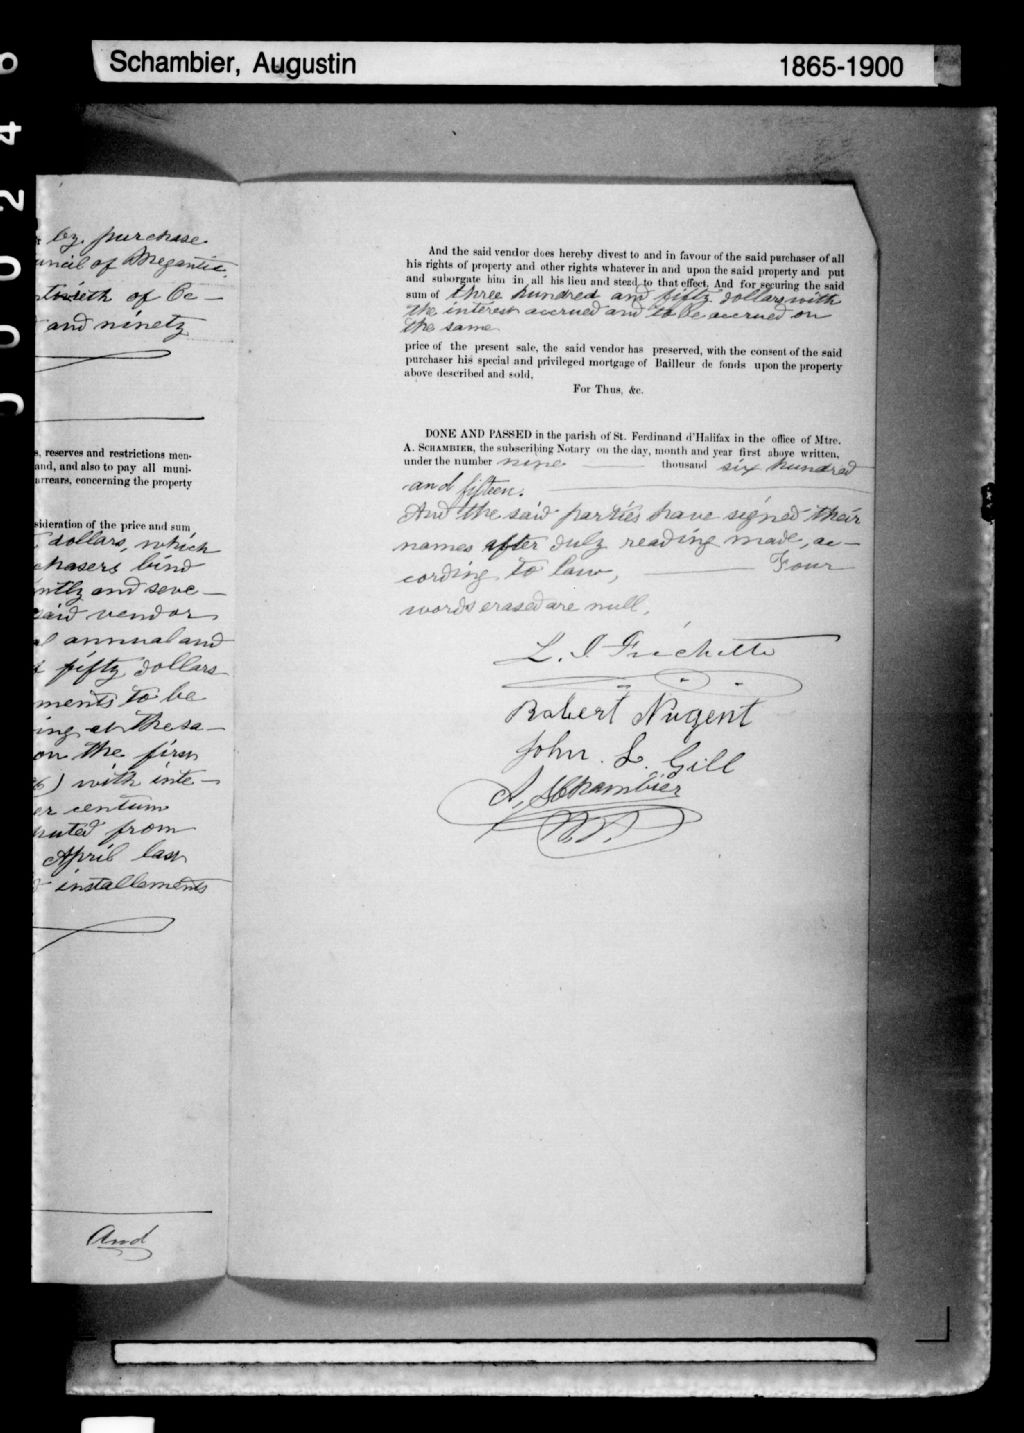 Schambier, Augustin 1865-1900
by purchase
uncil of Megantic,
tieth of Oc-
and ninety
s, reserves and restrictions men-
and, and also to pay all muni-
arrears, concerning the property
sideration of the price and sum
dollars, which
chasers bind
ntly and seve-
said vendor
annual and
fifty dollars
ments to be
ing at these
on the first
) with inte-
er centum
puted from
April last
installements
And
And the said vendor does hereby divest to and in favour of the said purchaser of all
his rights of property and other rights whatever in and upon the said property and put
and suborgate him in all his lieu and stead to that effect. And for securing the said
sum of three hundred and fifty dollars with
the interest accrued and to be accrued on
the same
price of the present sale, the said vendor has preserved, with the consent of the said
purchaser his special and privileged mortgage of Bailleur de fonds upon the property
above described and sold.
For Thus, &c.
DONE AND PASSED in the parish of St. Ferdinand d'Halifax in the office of Mtre.
A. SCHAMBIER, the subscribing Notary on the day, month and year first above written,
under the number nine thousand six hundred
and fifteen.
And the said parties have signed their
names after duly reading made, ac-
cording to law, Four
words erased are null.
L. I. Frechette
Robert Nugent
John L. Gill
A. Schambier
N.P.